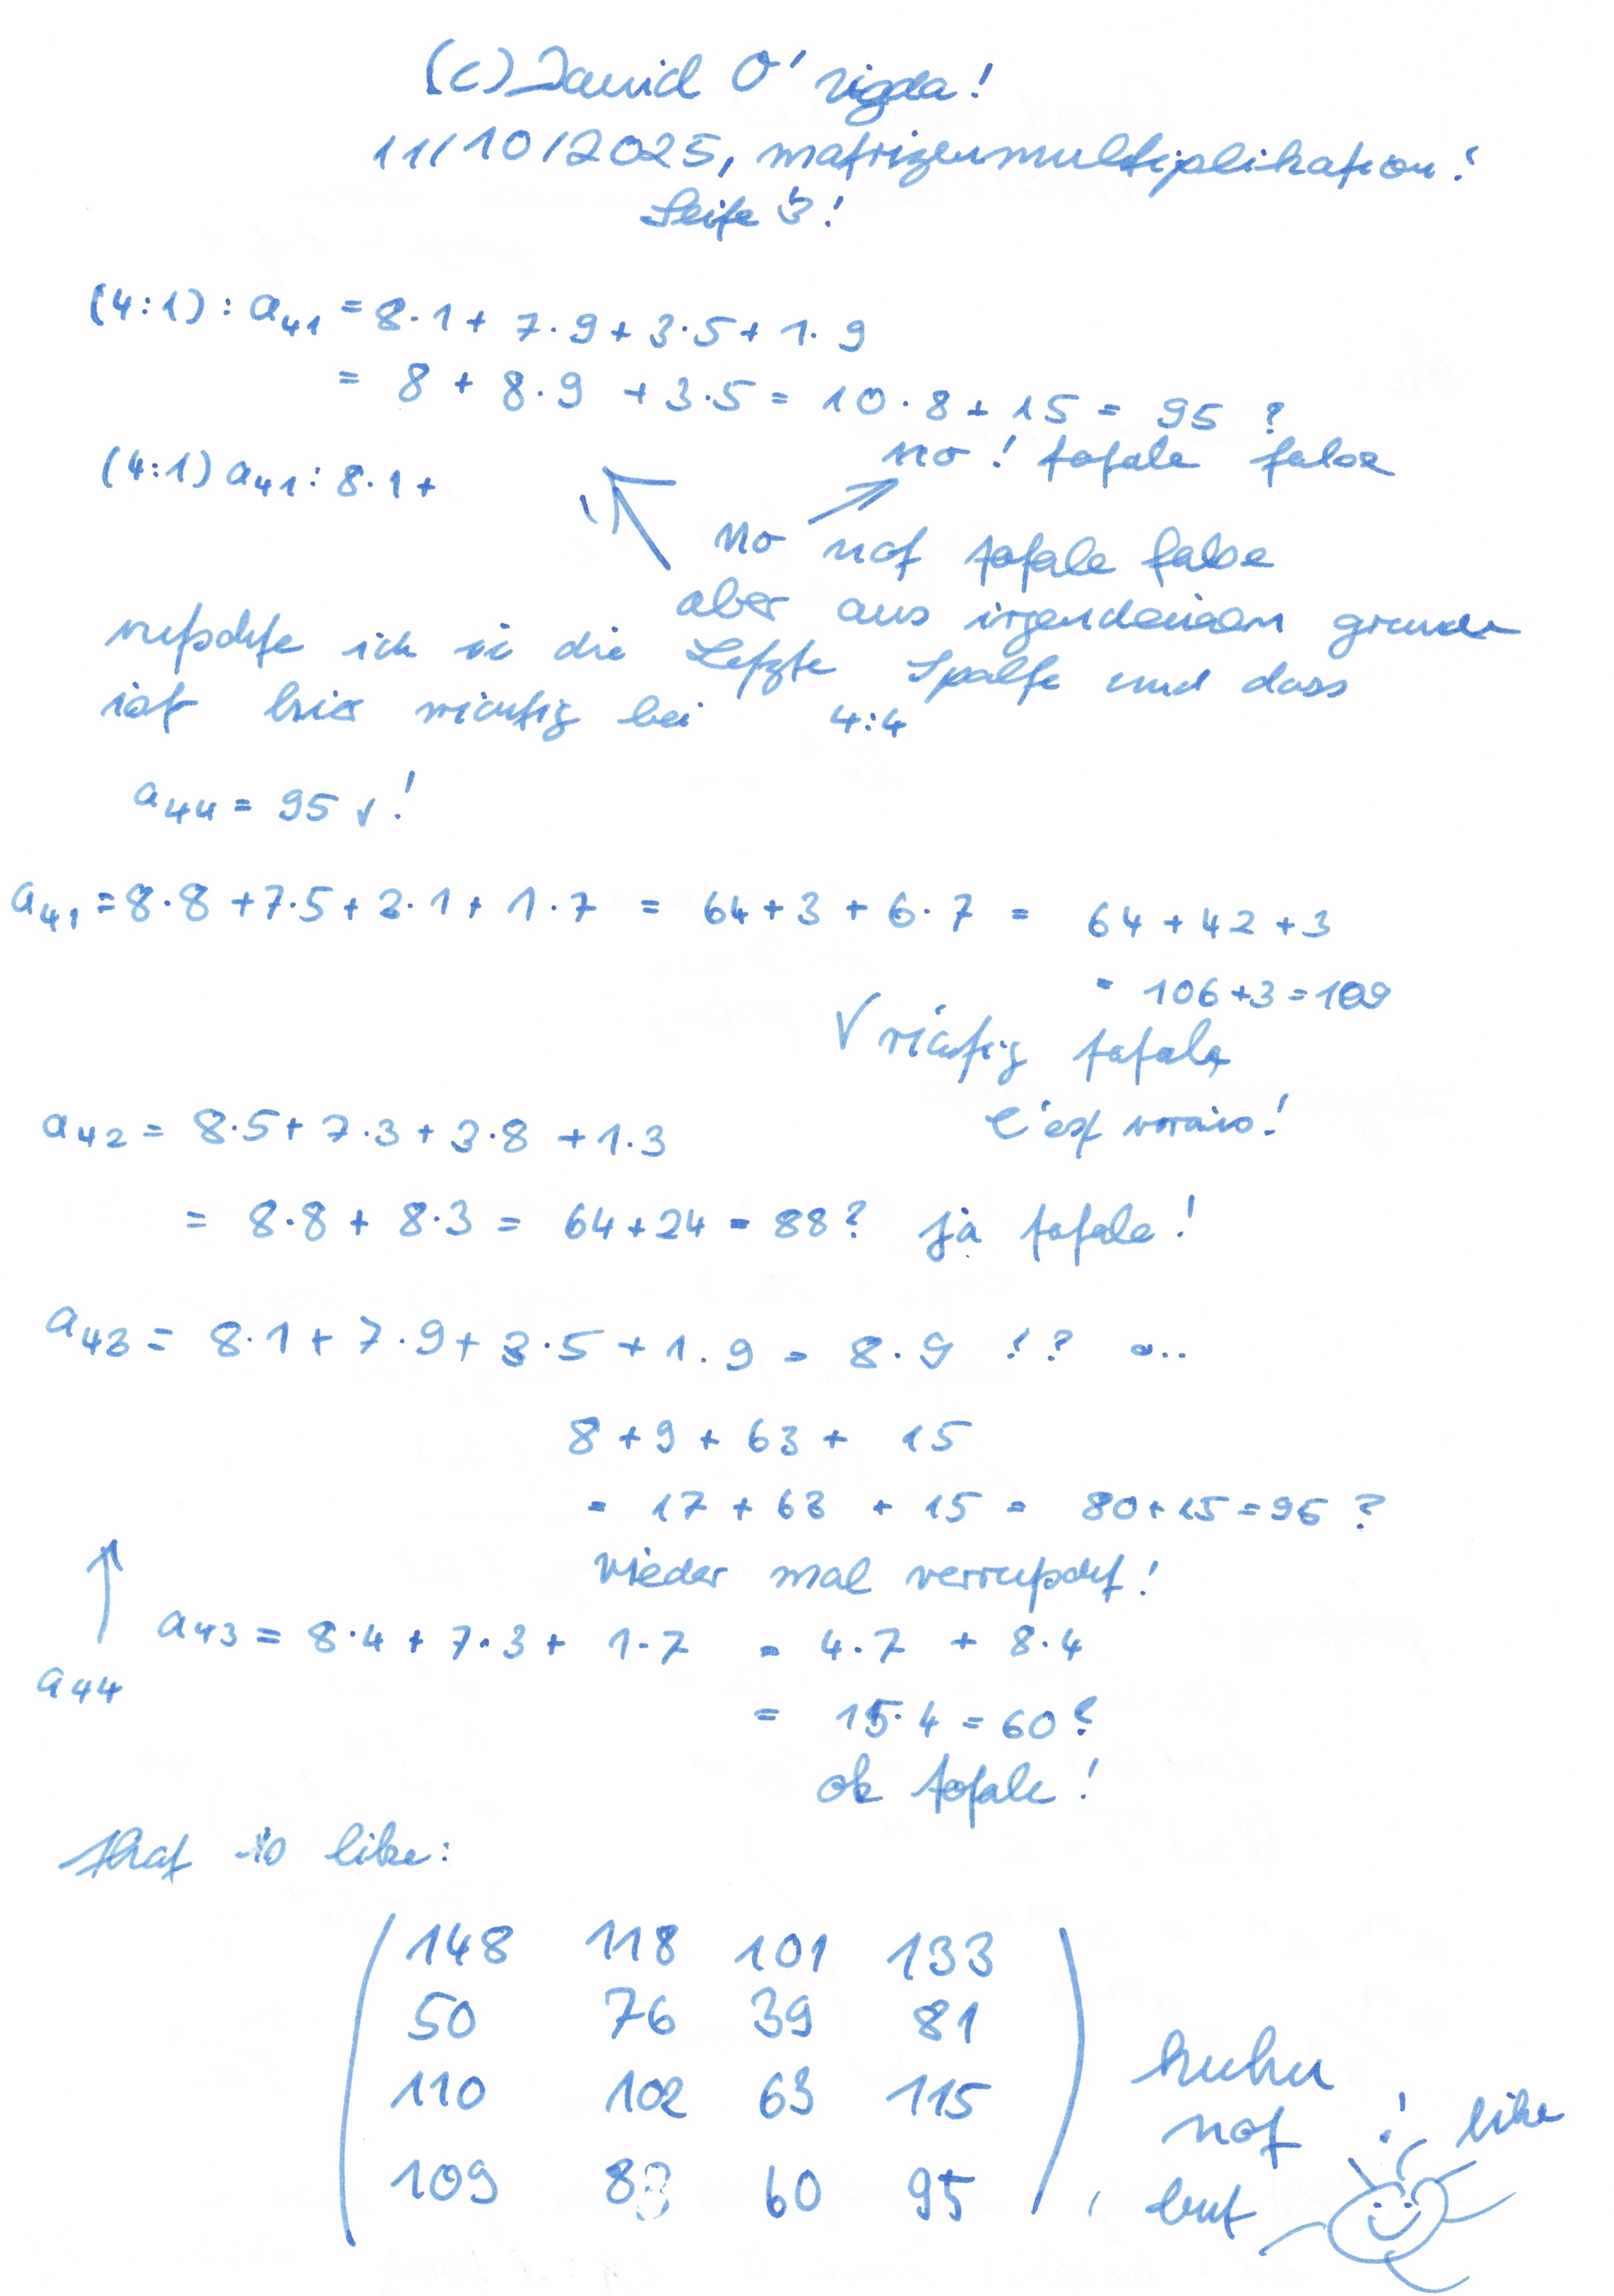 (c) David O' rigda!
11/10/2025, matrizenmultiplikation!
Seite 3!
(4:1): a41 = 8·1 + 7·9 + 3·5 + 1·9
= 8 + 8·9 + 3·5 = 10·8 + 15 = 95 ?
no! totale false
(4:1) a41: 8·1 +
No not totale false
aber aus irgendeinem grunde
rutschte ich in die Letzte Spalte und dass
ist hier richtig bei 4:4
a44 = 95 ✓!
a41 = 8·8 + 7·5 + 3·1 + 1·7 = 64 + 3 + 6·7 = 64 + 42 + 3
= 106 + 3 = 109
✓ richtig totale
C'est vrais!
a42 = 8·5 + 7·3 + 3·8 + 1·3
= 8·8 + 8·3 = 64 + 24 = 88? ja totale!
a43 = 8·1 + 7·9 + 3·5 + 1·9 = 8·9 !? ...
8 + 9 + 63 + 15
= 17 + 63 + 15 = 80 + 15 = 95 ?
wieder mal verrutscht!
a43 = 8·4 + 7·3 + 1·7 = 4·7 + 8·4
a44
= 15·4 = 60?
ok totale!
that is like:
148 118 101 133
50 76 39 81
110 102 63 115
109 88 60 95
huhu
not ! like
but